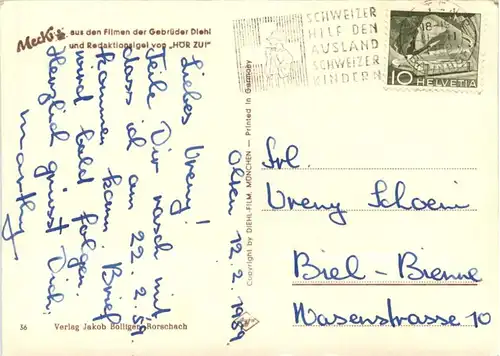 Mecki aus den Filmen der Gebrüder Diehl
und Redaktionsigel von „HÖR ZU!"
SCHWEIZER
HILF DEN
AUSLAND
SCHWEIZER
KINDERN
10 HELVETIA
Olten 12.2.1959
Liebes Vreny!
Teile Dir rasch mit
dass ich am 22.2.59
kommen kann. Brief
wird bald folgen.
Herzlich grüsst Dich
Copyright by DIEHL-FILM, MÜNCHEN — Printed in Germany
Frl.
Vreny Schoeni
Biel-Bienne
Wasenstrasse 10
36 Verlag Jakob Bolliger, Rorschach